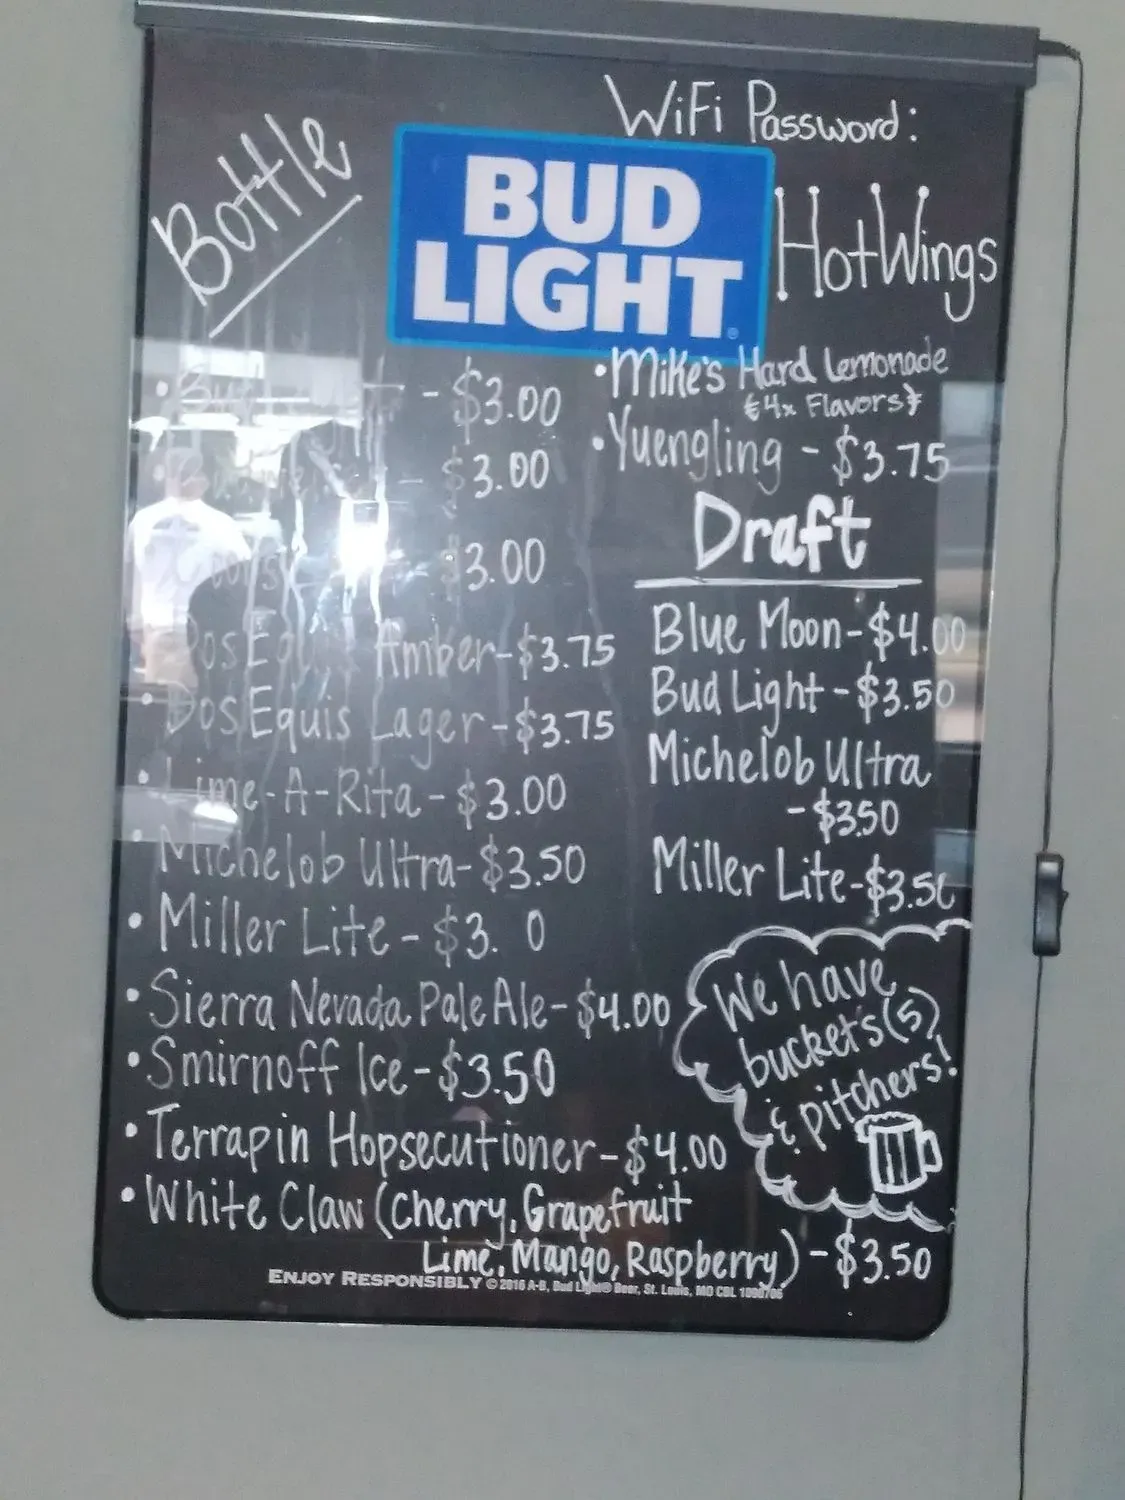 WiFi Password:
Bottle
BUD
LIGHT
HotWings
- $3.00
$3.00
- $3.00
Dos Equis Amber-$3.75
• Dos Equis Lager-$3.75
• Lime-A-Rita-$3.00
• Michelob Ultra-$3.50
• Miller Lite-$3. 0
• Sierra Nevada Pale Ale-$4.00
• Smirnoff Ice-$3.50
• Terrapin Hopsecutioner-$4.00
• White Claw (Cherry, Grapefruit
Lime, Mango, Raspberry)-$3.50
• Mike's Hard Lemonade
{4x Flavors}
• Yuengling - $3.75
Draft
Blue Moon-$4.00
Bud Light-$3.50
Michelob Ultra
-$3.50
Miller Lite-$3.50
We have
buckets(5)
& pitchers!
ENJOY RESPONSIBLY © 2016 A-B, Bud Light® Beer, St. Louis, MO CBL 1090706